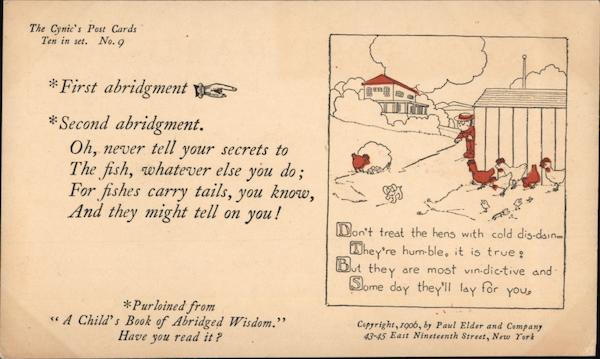 The Cynic's Post Cards
Ten in set. No. 9
*First abridgment
*Second abridgment.
Oh, never tell your secrets to
The fish, whatever else you do;
For fishes carry tails, you know,
And they might tell on you!
*Purloined from
"A Child's Book of Abridged Wisdom."
Have you read it?
Don't treat the hens with cold dis-dain—
They're hum-ble, it is true;
But they are most vin-dic-tive and
Some day they'll lay for you.
Copyright, 1906, by Paul Elder and Company
43-45 East Nineteenth Street, New York